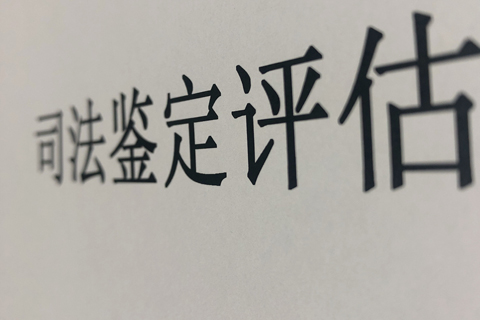 司法鉴定评估